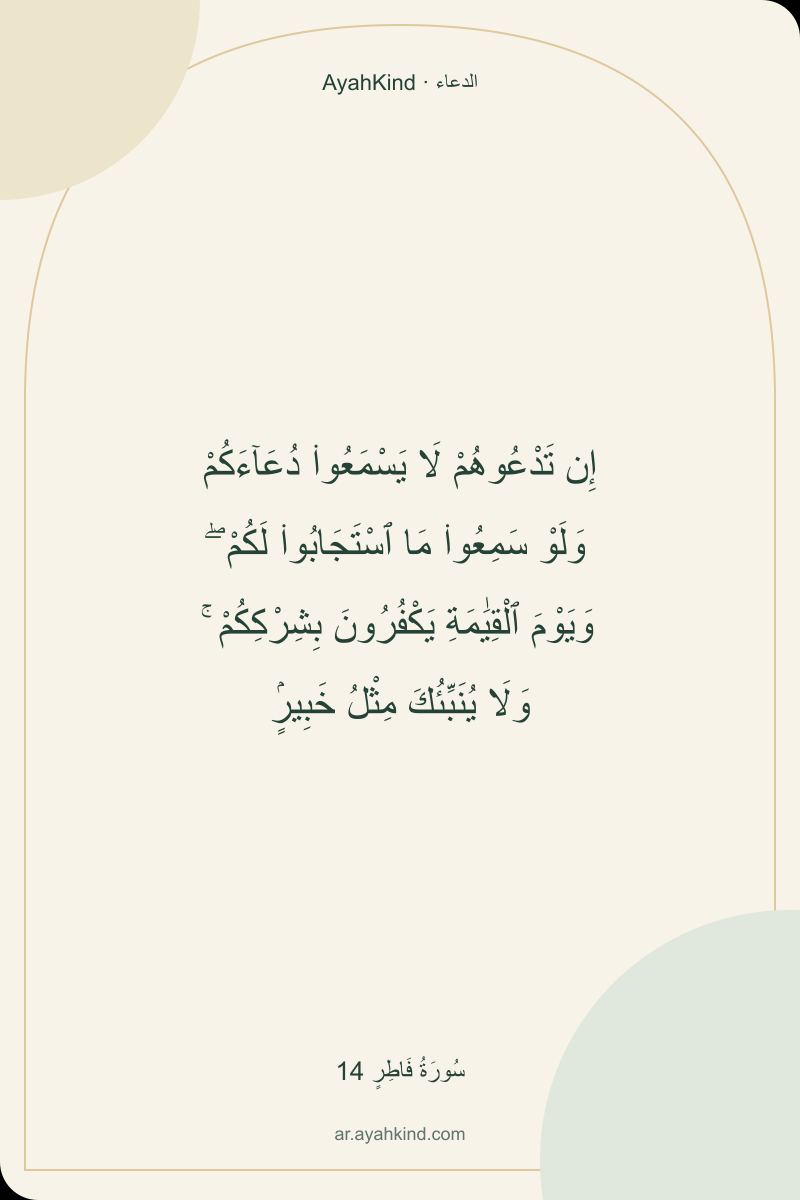 AyahKind · الدعاء
إِن تَدْعُوهُمْ لَا يَسْمَعُوا۟ دُعَآءَكُمْ
وَلَوْ سَمِعُوا۟ مَا ٱسْتَجَابُوا۟ لَكُمْ ۖ
وَيَوْمَ ٱلْقِيَٰمَةِ يَكْفُرُونَ بِشِرْكِكُمْ ۚ
وَلَا يُنَبِّئُكَ مِثْلُ خَبِيرٍۢ
سُورَةُ فَاطِرٍ 14
ar.ayahkind.com